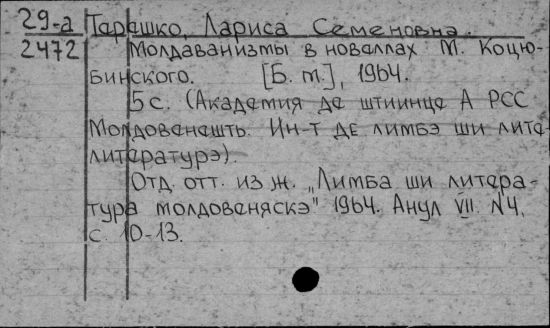 29-а Тарашко, Лариса Семеновна.
2472 Молдаванизмы в новеллах М. Коцю-
бинского. [Б. м.], 1964.
5 с. (Академия де штиинце А РСС
Молдовенешть. Ин-т де лимбэ ши лите
литературэ).
Отд. отт. из ж. „Лимба ши литера-
тура молдовеняскэ" 1964. Анул VII. №4,
с. 10-13.